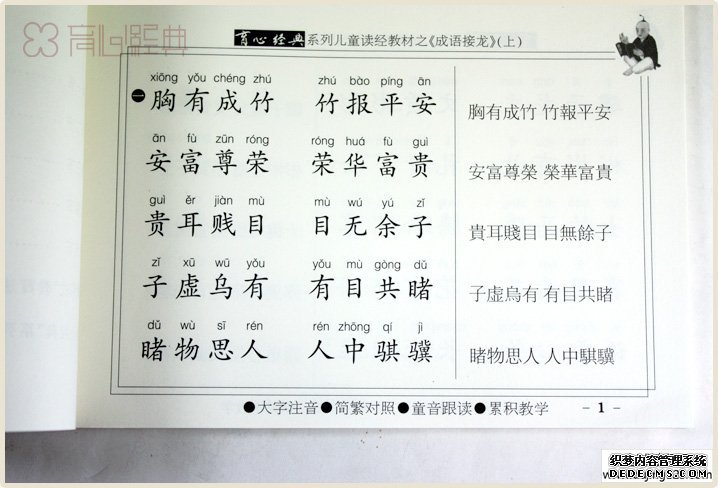 育心经典
育心经典系列儿童读经教材之《成语接龙》(上)
xiōng yǒu chéng zhú zhú bào píng ān
一 胸有成竹 竹报平安 胸有成竹 竹報平安
ān fù zūn róng róng huá fú guì
安富尊荣 荣华富贵 安富尊榮 榮華富貴
guì ěr jiàn mù mù wú yú zǐ
贵耳贱目 目无余子 貴耳賤目 目無餘子
zǐ xū wū yǒu yǒu mù gòng dǔ
子虚乌有 有目共睹 子虛烏有 有目共睹
dǔ wù sī rén rén zhōng qí jì
睹物思人 人中骐骥 睹物思人 人中騏驥
●大字注音●简繁对照●童音跟读●累积教学 - 1 -
织梦内容管理系统
DEDECMS.COM